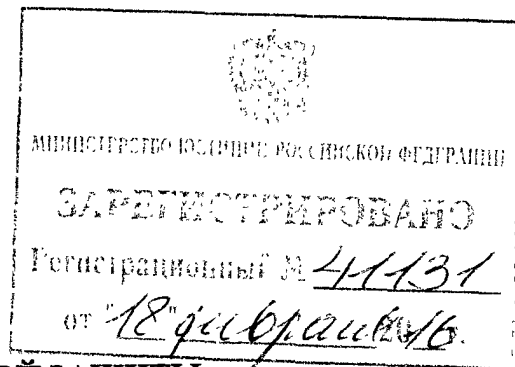 МИНИСТЕРСТВО ЮСТИЦИИ РОССИЙСКОЙ ФЕДЕРАЦИИ
ЗАРЕГИСТРИРОВАНО
Регистрационный № 41131
от "18" февраля 2016.